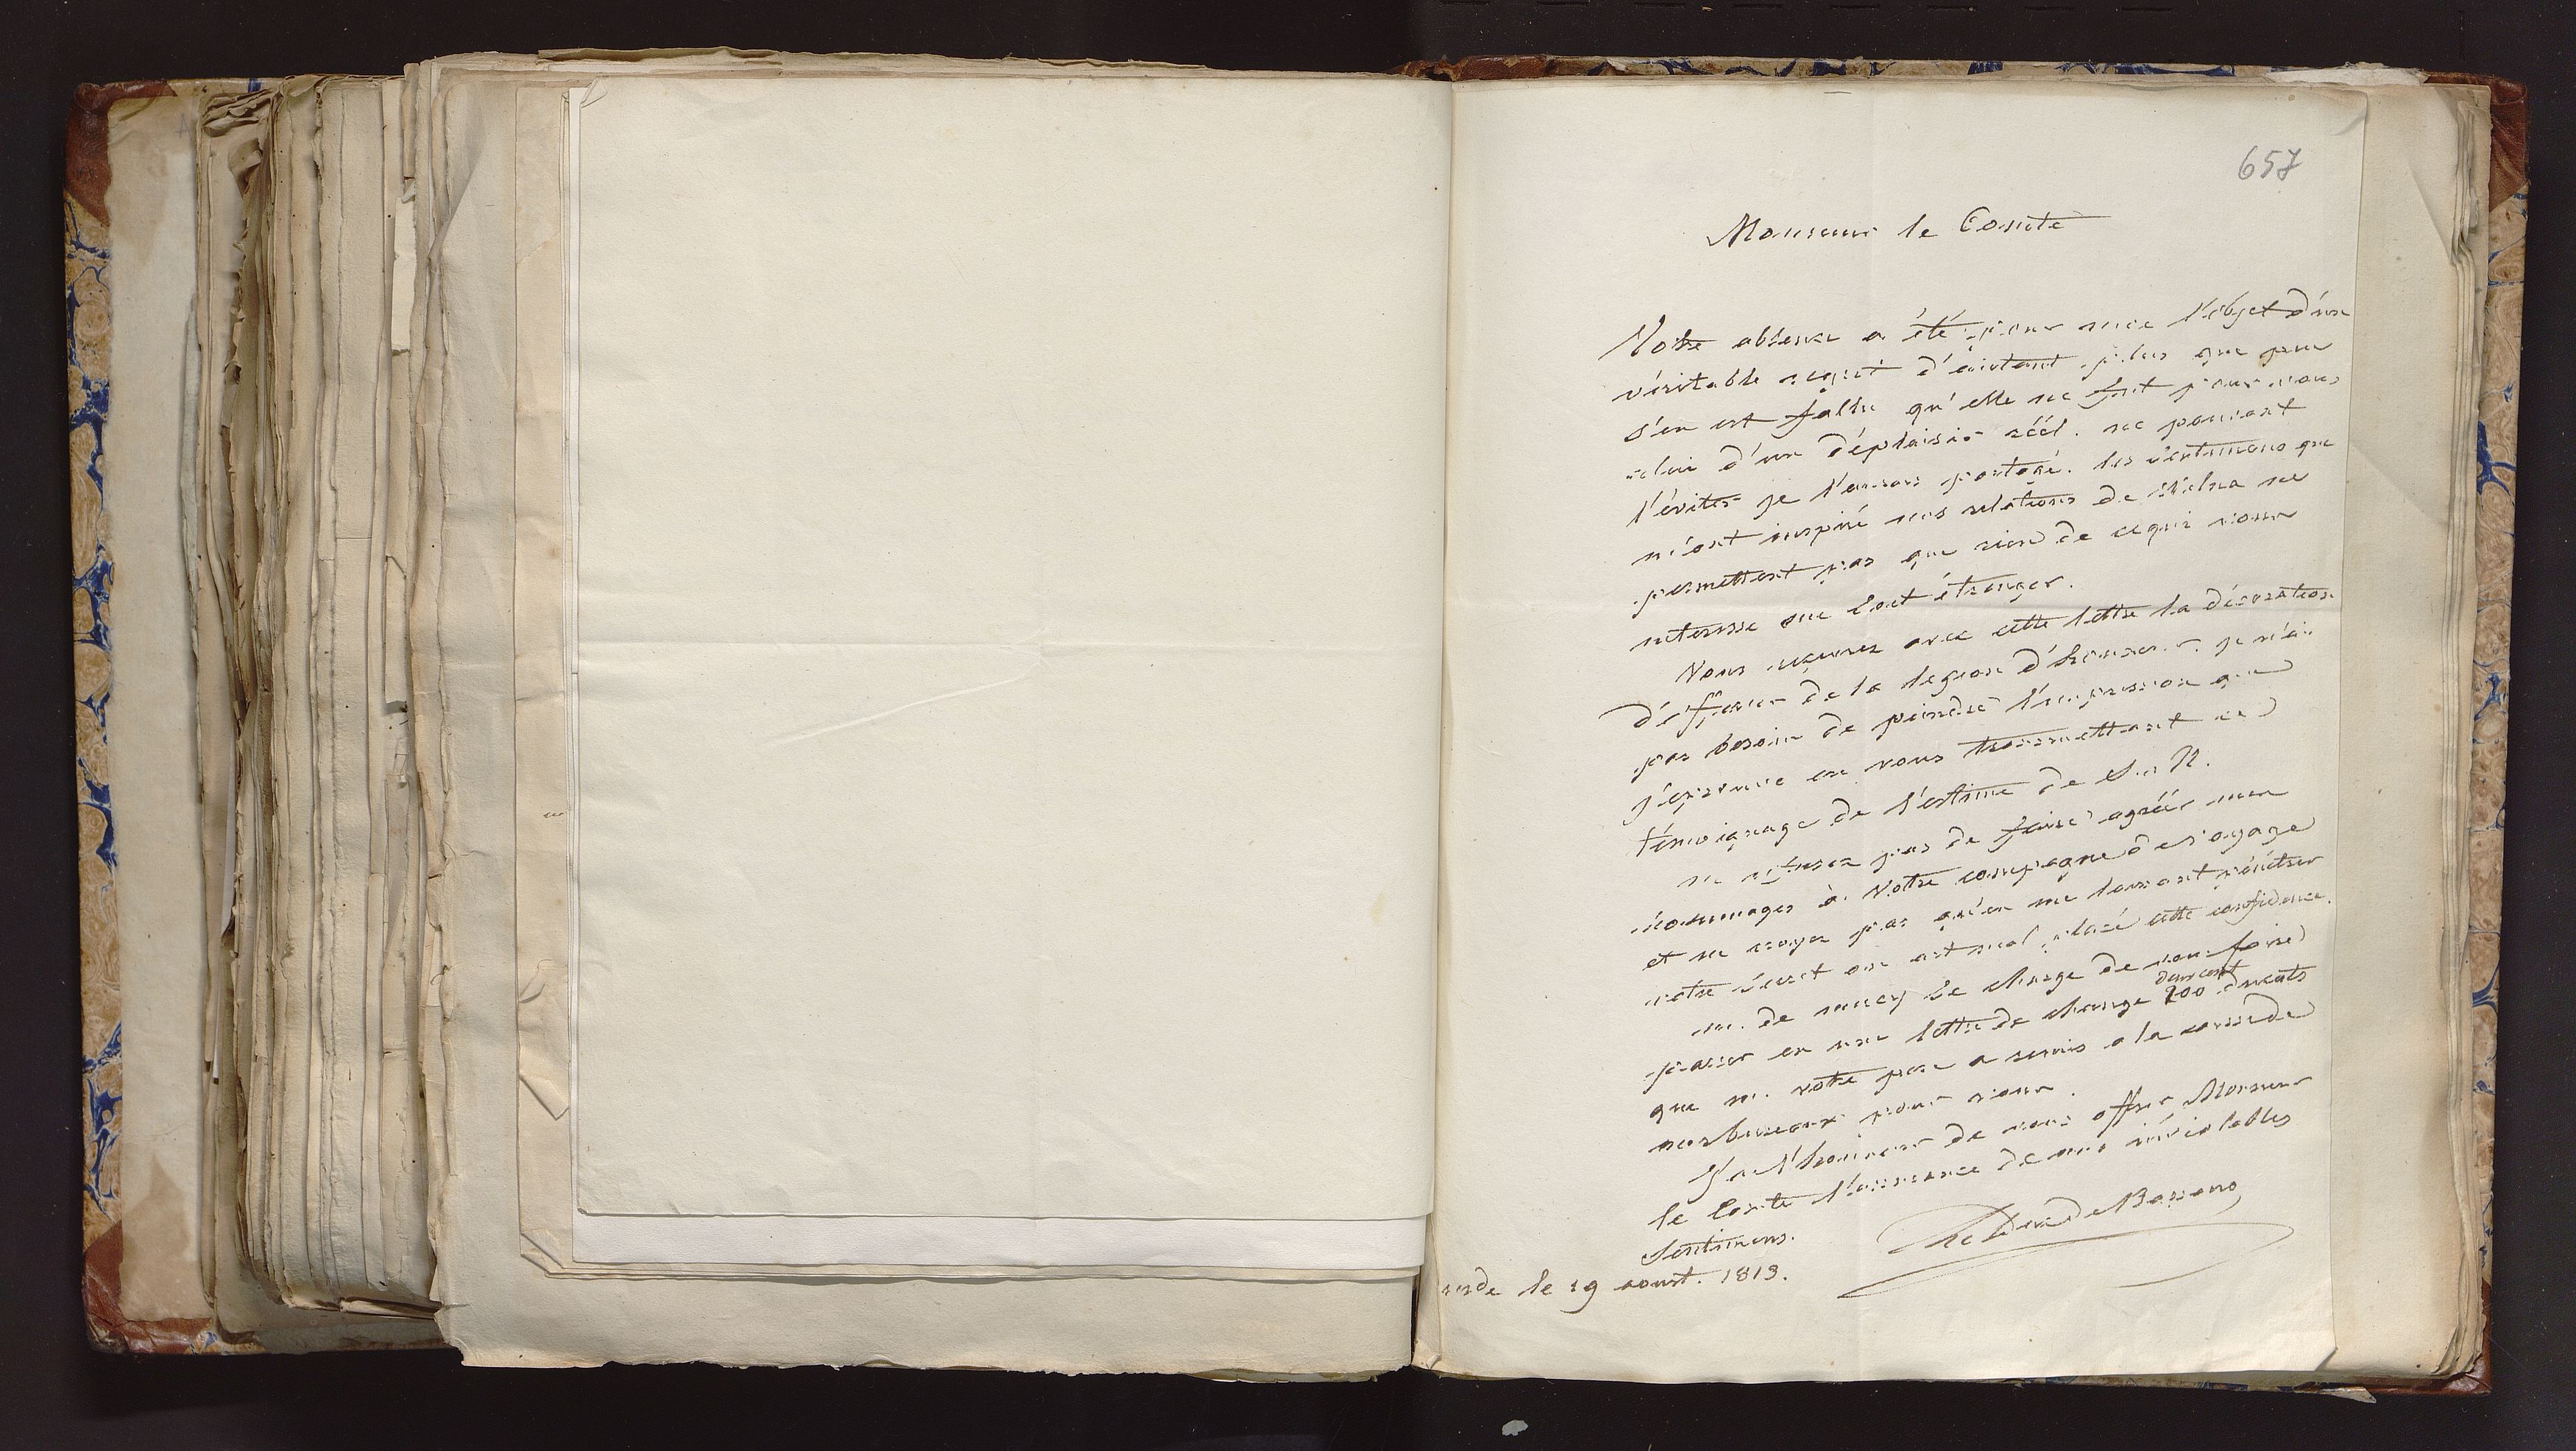 657
Monsieur le Comte
Votre absence a été pour moi l'objet d'un
véritable regret d'autant plus que peu
s'en est fallu qu'elle ne fut pour vous
celui d'un déplaisir réél. ne pouvant
l'éviter je l'aurois partagé. les sentimens que
m'ont inspiré nos relations de Wilna ne
permettent pas que rien de ce qui vous
interesse me soit étranger.
Vous recevrez avec cette lettre la décoration
d'officier de la legion d'honneur. je n'ai
pas besoin de peindre l'impression que
j'éprouve en vous transmettant ce
témoignage de l'estime de S. M.
ne refusez pas de faire agréér mes
hommages à Votre compagne de voyage
et ne croyez pas qu'en me laissant pénétrer
votre secret on ait mal placé cette confidence.
m. de se charge de vous faire
passer en une lettre de change deux cent
200 ducats
que m. votre pere a remis a la caisse de
nos bureaux pour vous.
J'ai l'honneur de vous offrir Monsieur
le Comte l'assurance de mes inviolables
Sentimens.
Le duc de Bassano
le 19 aoust. 1813.